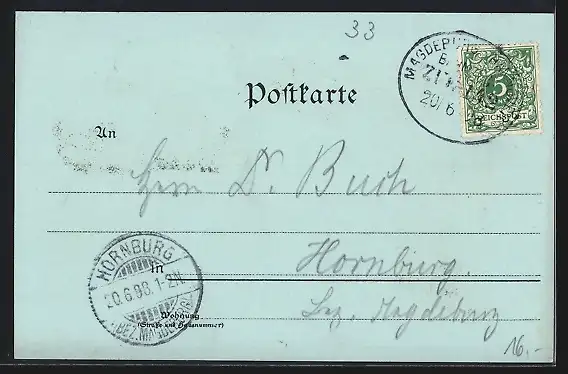 33
MAGDEBURG
ZUG
20/6
5
REICHSPOST
Postkarte
An
Herrn Dr. Busch
HORNBURG
20.6.98. 1-2N.
(BEZ. MAGDEBURG)
in
Hornburg.
Bez. Magdeburg
Wohnung
(Straße und Hausnummer)
16.-